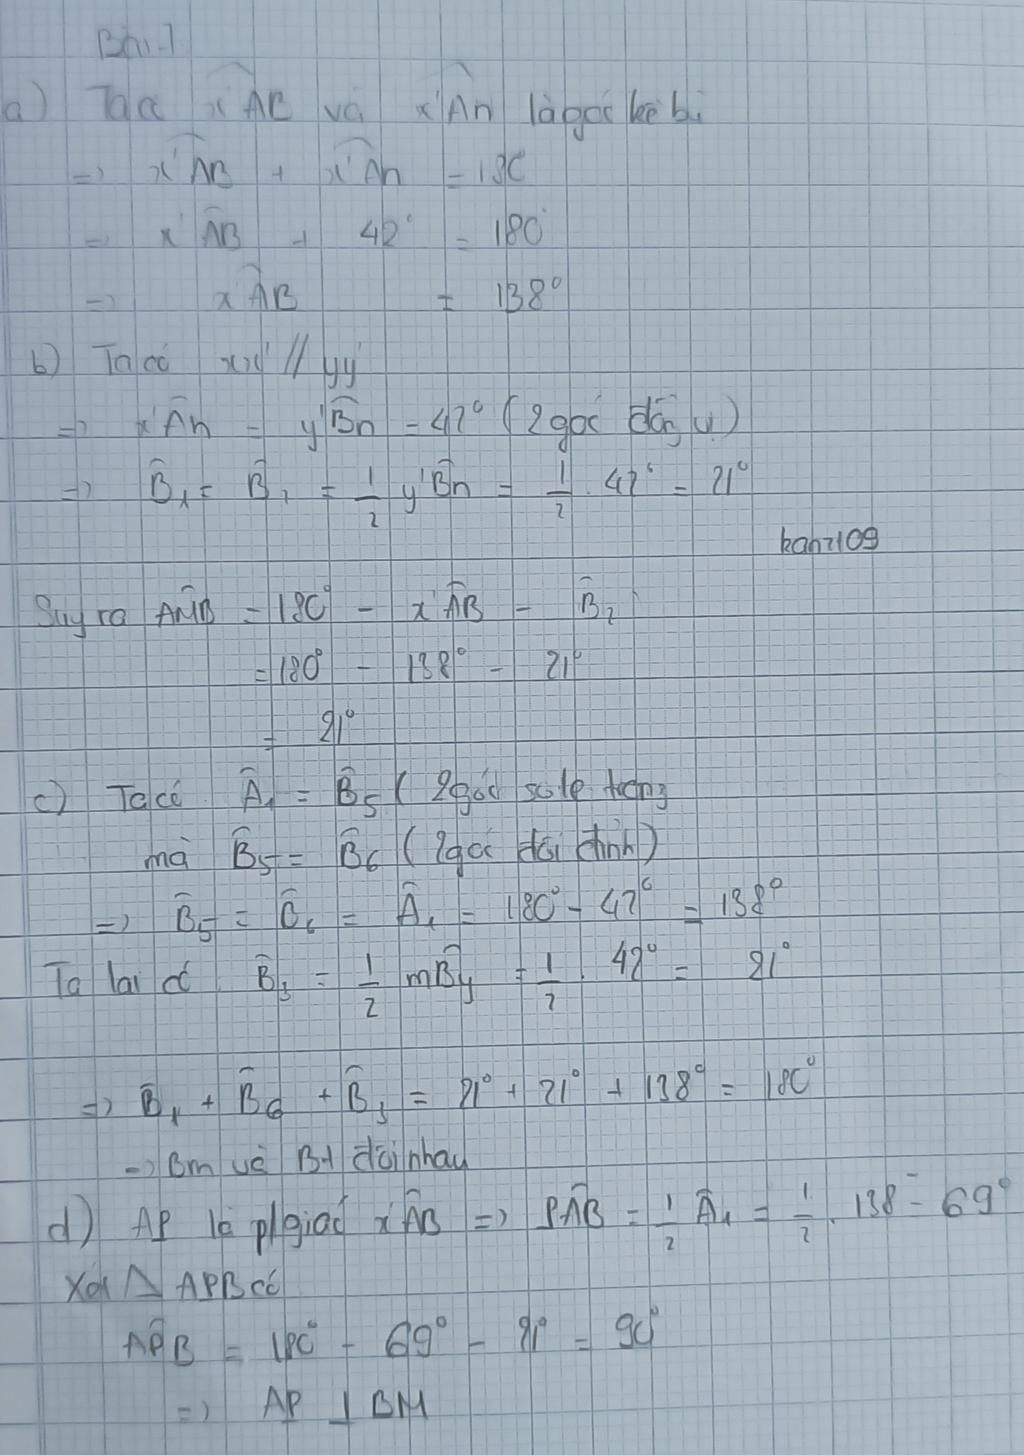 Bài 1
a) Ta có x'AB và x'An là góc kề bù
=> x'AB + x'An = 180
=> x'AB + 42° = 180°
=> x'AB = 138°
b) Ta có xx' // yy'
=> x'An = y'Bn = 42° (2 góc đồng vị)
=> B̂₁ = B̂₂ = 1/2 y'Bn = 1/2 . 42° = 21°
kah2109
Suy ra AMB = 180° - x'AB - B̂₂
= 180° - 138° - 21°
= 21°
c) Ta có Â₁ = B̂₅ (2 góc so le trong
mà B̂₅ = B̂₆ (2 góc đối đỉnh)
=> B̂₅ = B̂₆ = Â₁ = 180° - 42° = 138°
Ta lại có B̂₃ = 1/2 mBy = 1/2 . 42° = 21°
=> B̂₁ + B̂₆ + B̂₃ = 21° + 21° + 138° = 180°
=> Bm và Bt đối nhau
d) AP là p/giác x'AB => PAB = 1/2 Â₁ = 1/2 . 138 = 69°
Xét △ APB có
APB = 180° - 69° - 21° = 90°
=> AP ⊥ BM